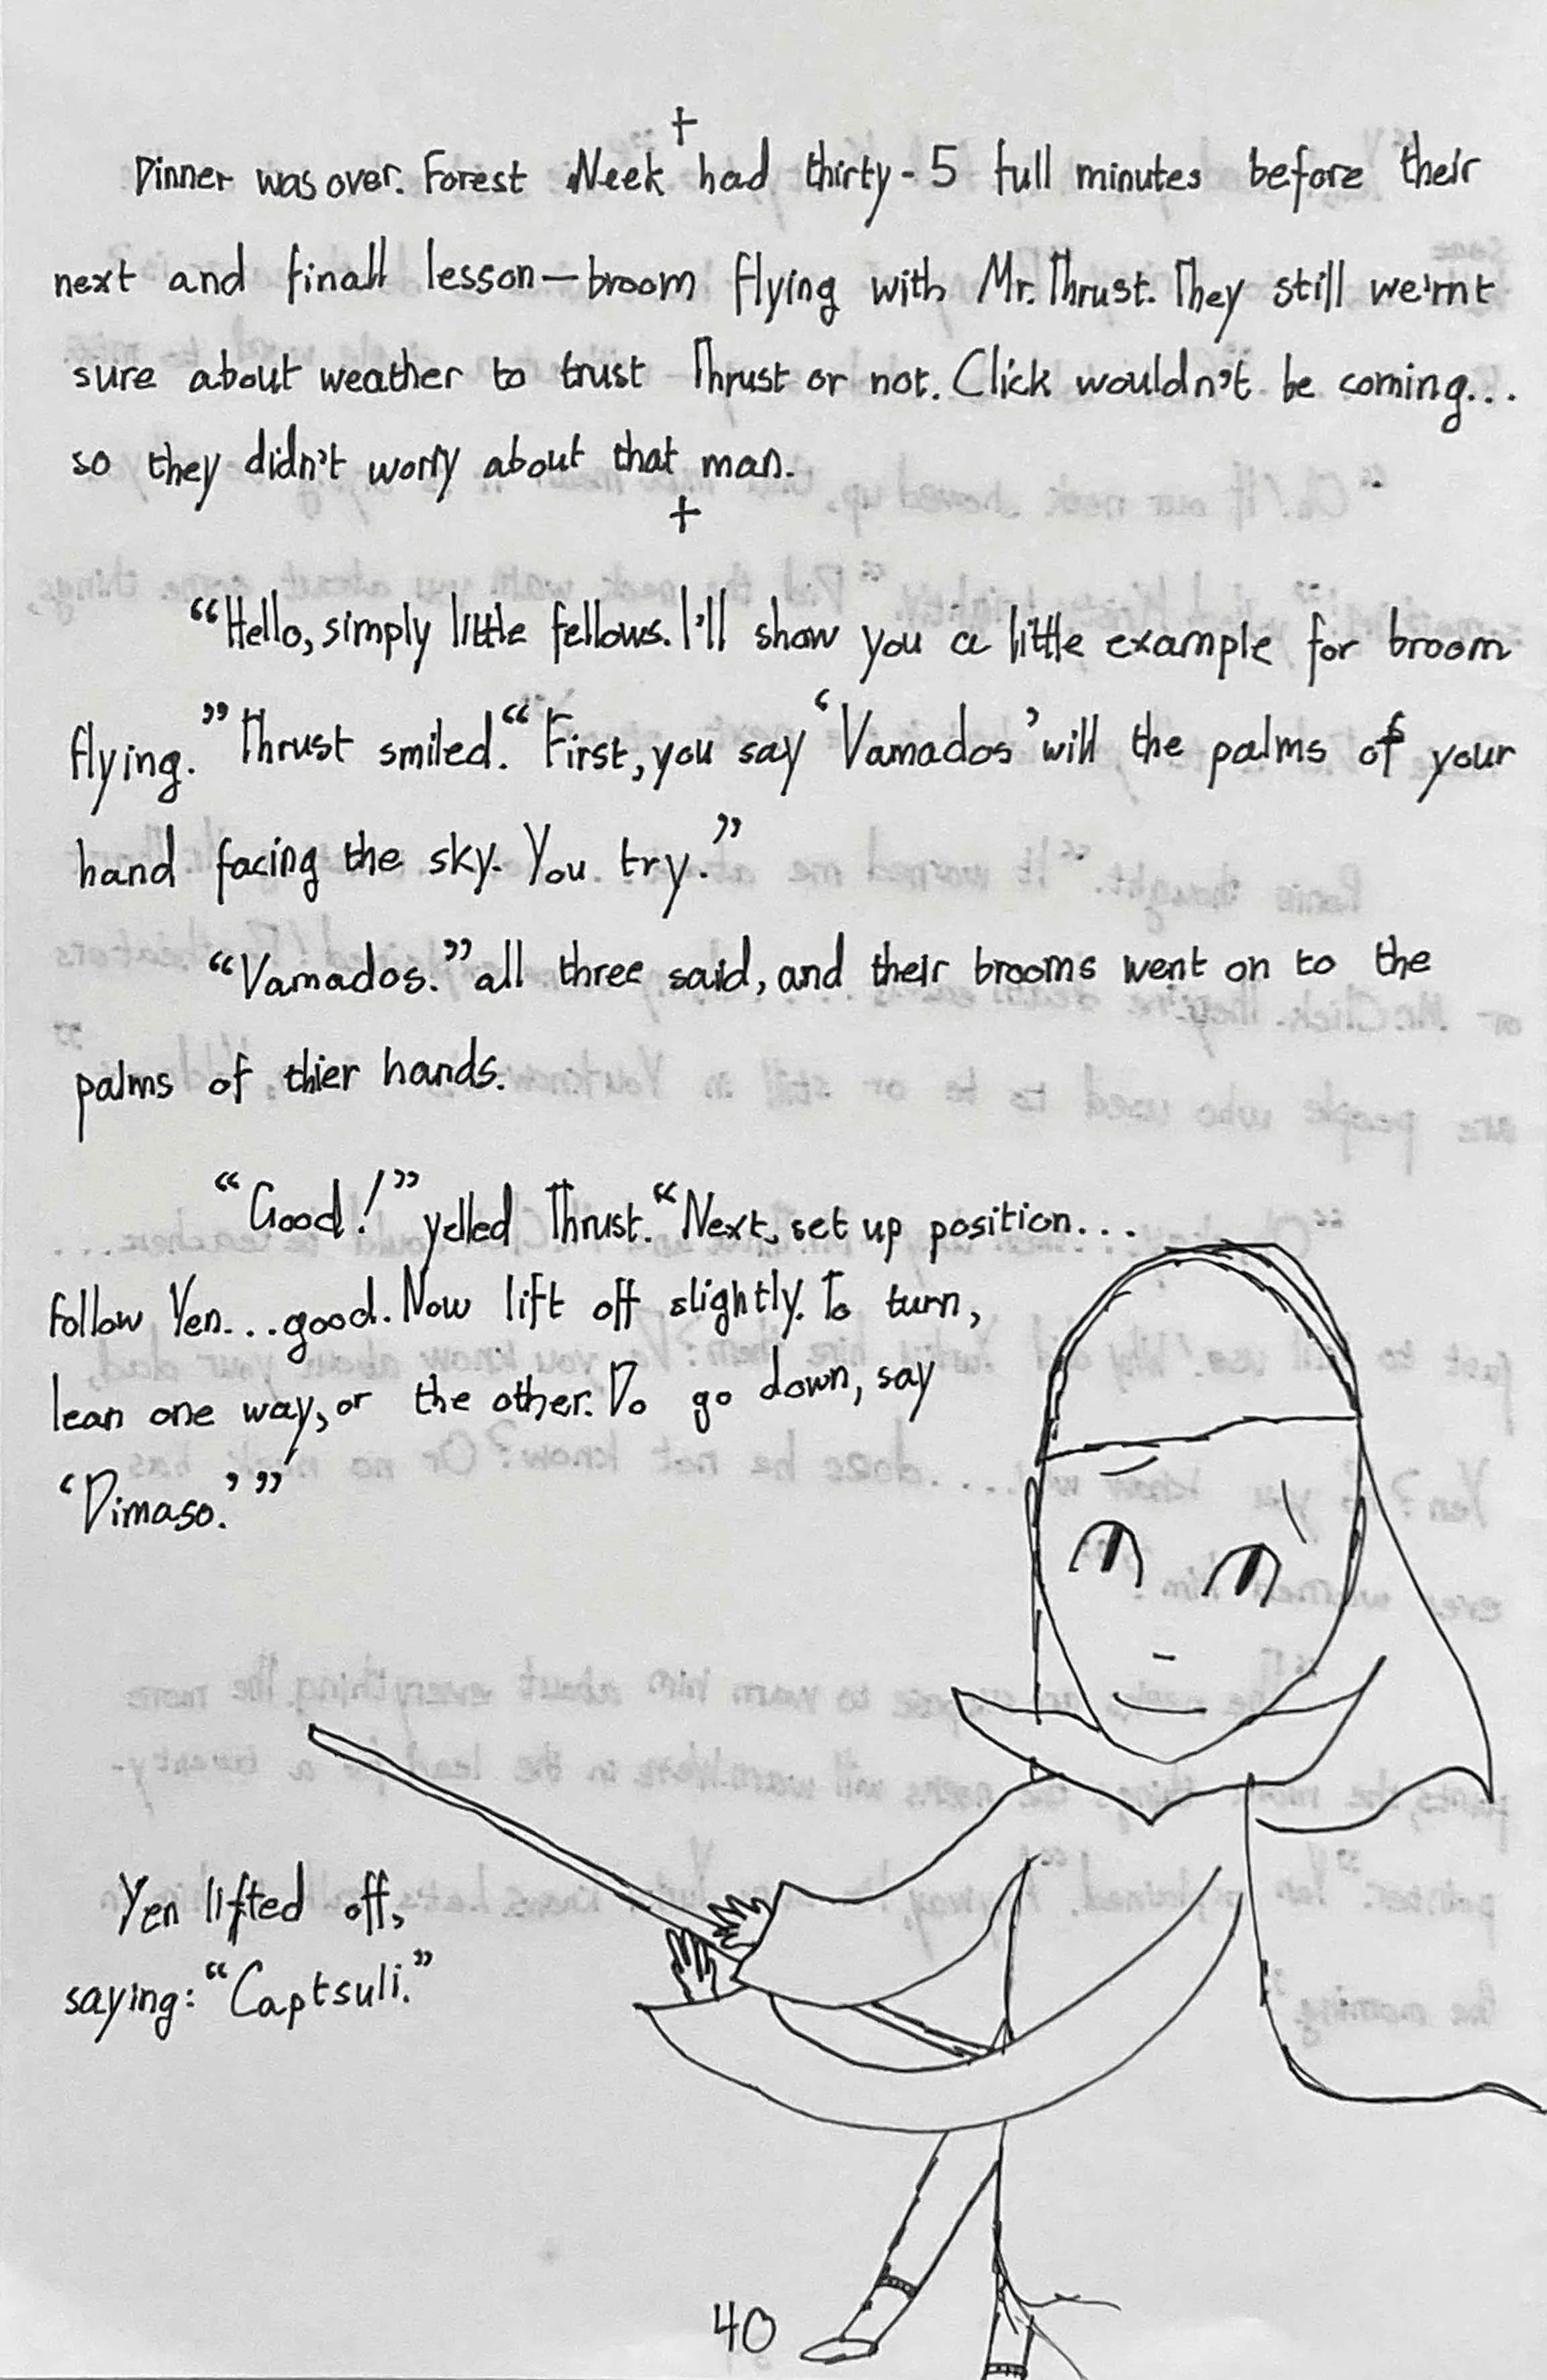 +
Dinner was over. Forest Neek had thirty-5 full minutes before their
next and finall lesson—broom flying with Mr. Thrust. They still we'rnt
sure about weather to trust Thrust or not. Click wouldn't be coming...
so they didn't worry about that man.
+
“Hello, simply little fellows. I'll show you a little example for broom
flying.” Thrust smiled. “First, you say ‘Vamados’ will the palms of your
hand facing the sky. You try.”
“Vamados.” all three said, and their brooms went on to the
palms of thier hands.
“Good!” yelled Thrust. “Next, set up position...
follow Yen...good. Now lift off slightly. To turn,
lean one way, or the other. Do go down, say
‘Dimaso.’”
Yen lifted off,
saying: “Captsuli.”
40